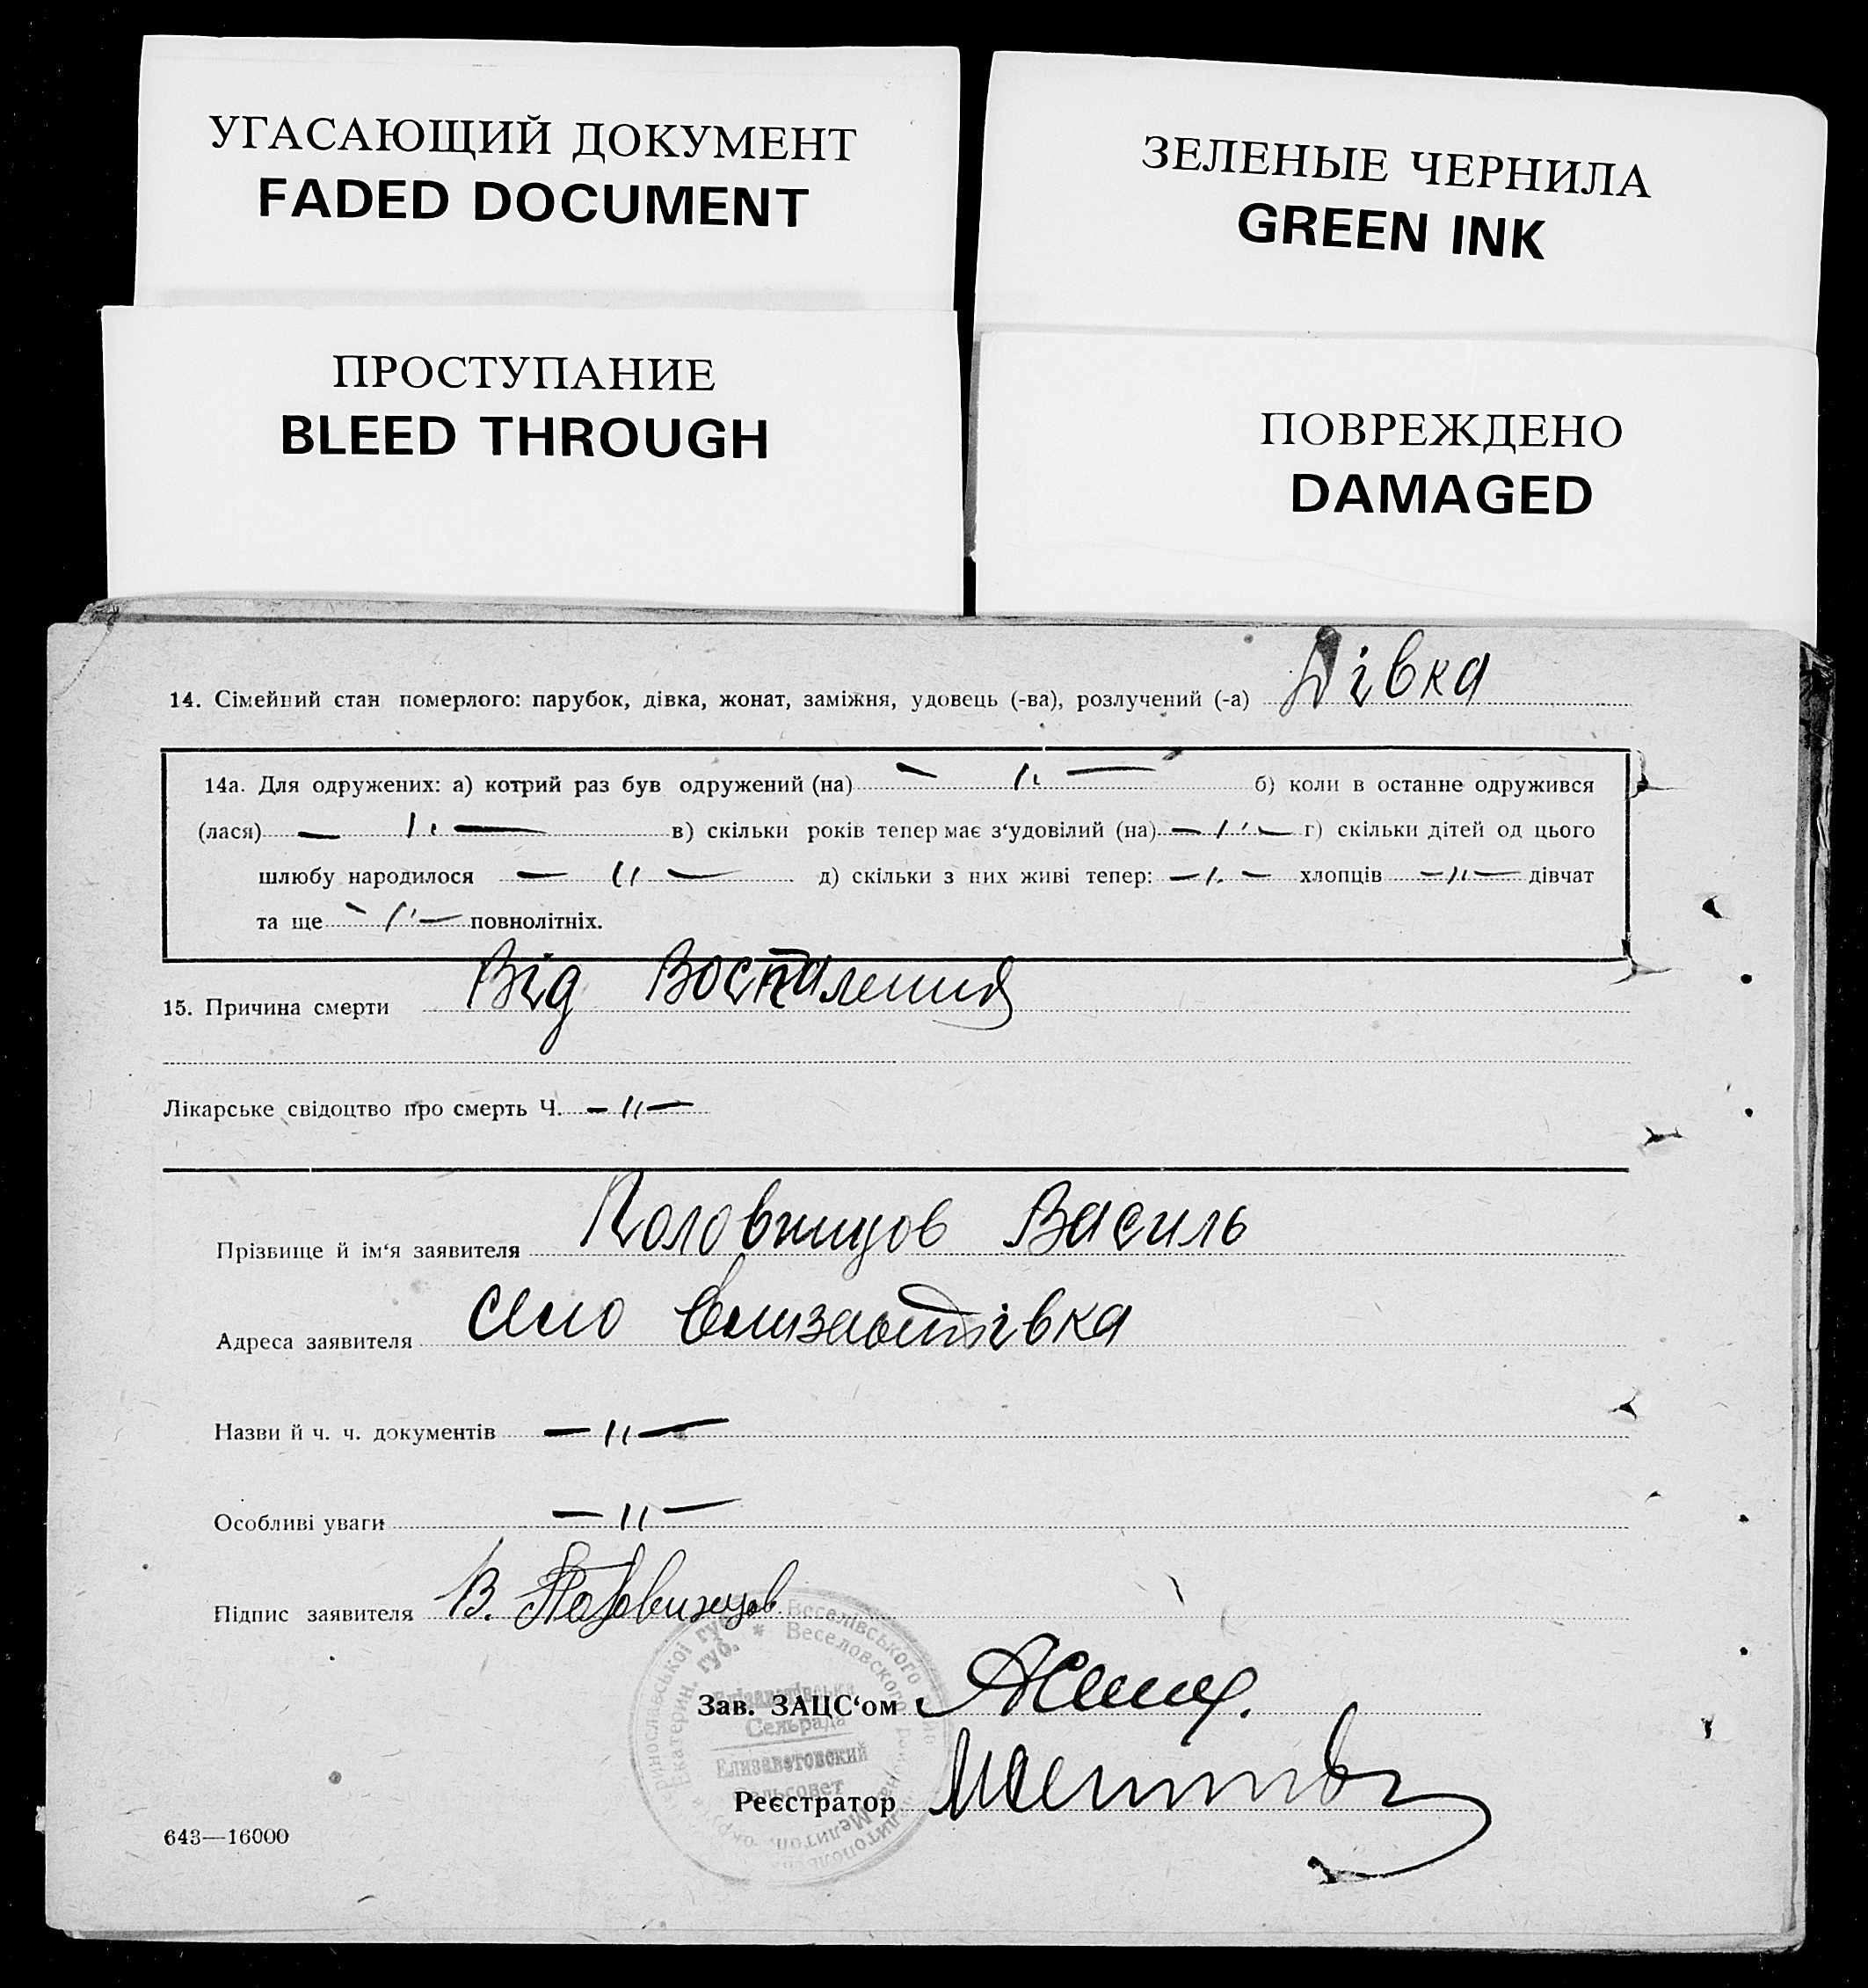 УГАСАЮЩИЙ ДОКУМЕНТ
FADED DOCUMENT
ЗЕЛЕНЫЕ ЧЕРНИЛА
GREEN INK
ПРОСТУПАНИЕ
BLEED THROUGH
ПОВРЕЖДЕНО
DAMAGED
14. Сімейний стан померлого: парубок, дівка, жонат, заміжня, удовець (-ва), розлучений (-а) Дівка
14а. Для одружених: а) котрий раз був одружений (на) — " — б) коли в останне одружився
(лася) — " — в) скільки років тепер має з‘удовілий (на) — " — г) скільки дітей од цього
шлюбу народилося — " — д) скільки з них живі тепер: — " — хлопців — " — дівчат
та ще — " — повнолітніх.
15. Причина смерти Від Воспаления
Лікарське свідоцтво про смерть Ч. — " —
Прізвище й ім‘я заявителя Половинцов Василь
Адреса заявителя село Елизаветівка
Назви й ч. ч. документів — " —
Особливі уваги — " —
Підпис заявителя В. Половинцов
Зав. ЗАЦС‘ом
Реєстратор
Веселівського
Веселовского района
Екатерин. губ. *
Мелитоп. окр.
Єлізаветівська
Сельрада
Елизаветовский
Сельсовет
643—16000